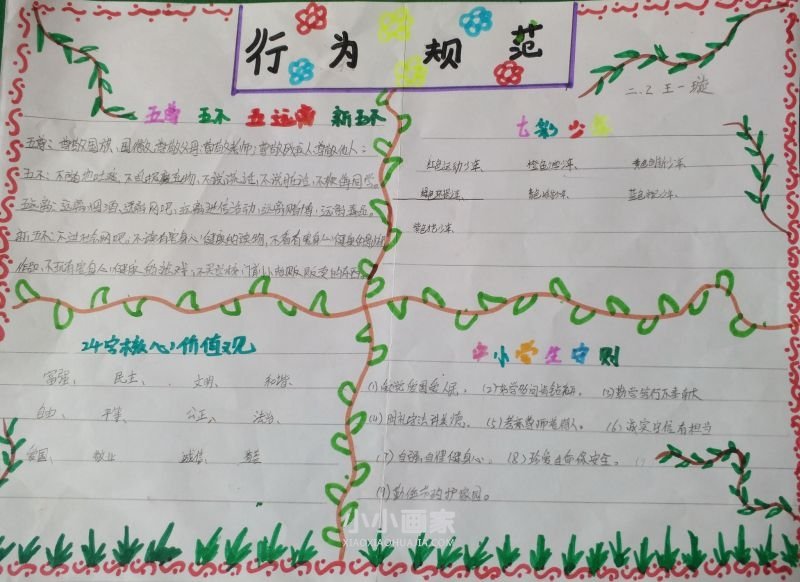 行为规范
二.2 王一璇
五尊 五不 五远离 新五不
五尊：尊敬国旗、国徽、尊敬父母、尊敬老师；尊敬残疾人、尊敬他人；
五不：不随地吐痰、不乱扔废弃物、不说谎话，不说脏话，不欺侮同学。
五远离：远离烟酒，远离网吧，远离迷信活动，远离赌博，远离毒品。
新五不：不进社会网吧；不读有害身心健康的读物，不看有害身心健康的影视
作品、不玩有害身心健康的游戏，不买学校门前小商贩贩卖的东西。
七彩少年
红色运动少年、 橙色 少年、 黄色 少年、
绿色环保少年、 青色 少年、 蓝色 少年、
紫色 少年、
24字核心价值观
富强、 民主、 文明、 和谐、
自由、 平等、 公正、 法治、
爱国、 敬业、 诚信、 友善
中小学生守则
(1)爱党爱国爱人民。 (2)好学多问肯钻研。 (3)勤劳笃行乐奉献
(4)明礼守法讲美德。 (5)孝亲尊师善待人。 (6)诚实守信有担当
(7)自强自律健身心。 (8)珍爱生命保安全。
(9)勤俭节约护家园。
小小画家
XIAOXIAOHUAJIA.COM